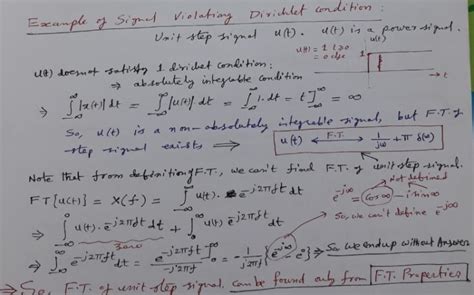 Example of Signal Violating Dirichlet condition:
Unit step signal u(t). u(t) is a power signal.
u(t) = 1 t≥0
= 0 else
u(t)
1
t
u(t) does not satisfy 1 dirichlet condition:
⇒ absolutely integrable condition
⇒ ∫_{-∞}^{∞} |x(t)| dt = ∫_{-∞}^{∞} |u(t)| dt = ∫_{0}^{∞} 1. dt = t]_{0}^{∞} = ∞
So, u(t) is a non-absolutely integrable signal, but F.T. of
step signal exists ⇒ u(t) ←F.T.→ 1/jω + π δ(ω)
Note that from definition of F.T., we can't find F.T. of unit step signal.
not defined
FT[u(t)] = X(f) = ∫_{-∞}^{∞} u(t). e^{-j2πft} dt
e^{-j∞} = cos∞ - i sin∞
So, we can't define e^{-j∞}
⇒ ∫_{-∞}^{0} u(t). e^{-j2πft} dt + ∫_{0}^{∞} u(t). e^{-j2πft} dt
zero
⇒ ∫_{0}^{∞} e^{-j2πft} dt = e^{-j2πft}/-j2πf |_{0}^{∞} = -1/j2πf {e^{-j∞} - e^{0}} ⇒ So we end up without Answer
⇒ So, F.T. of unit step signal can be found only from F.T. Properties